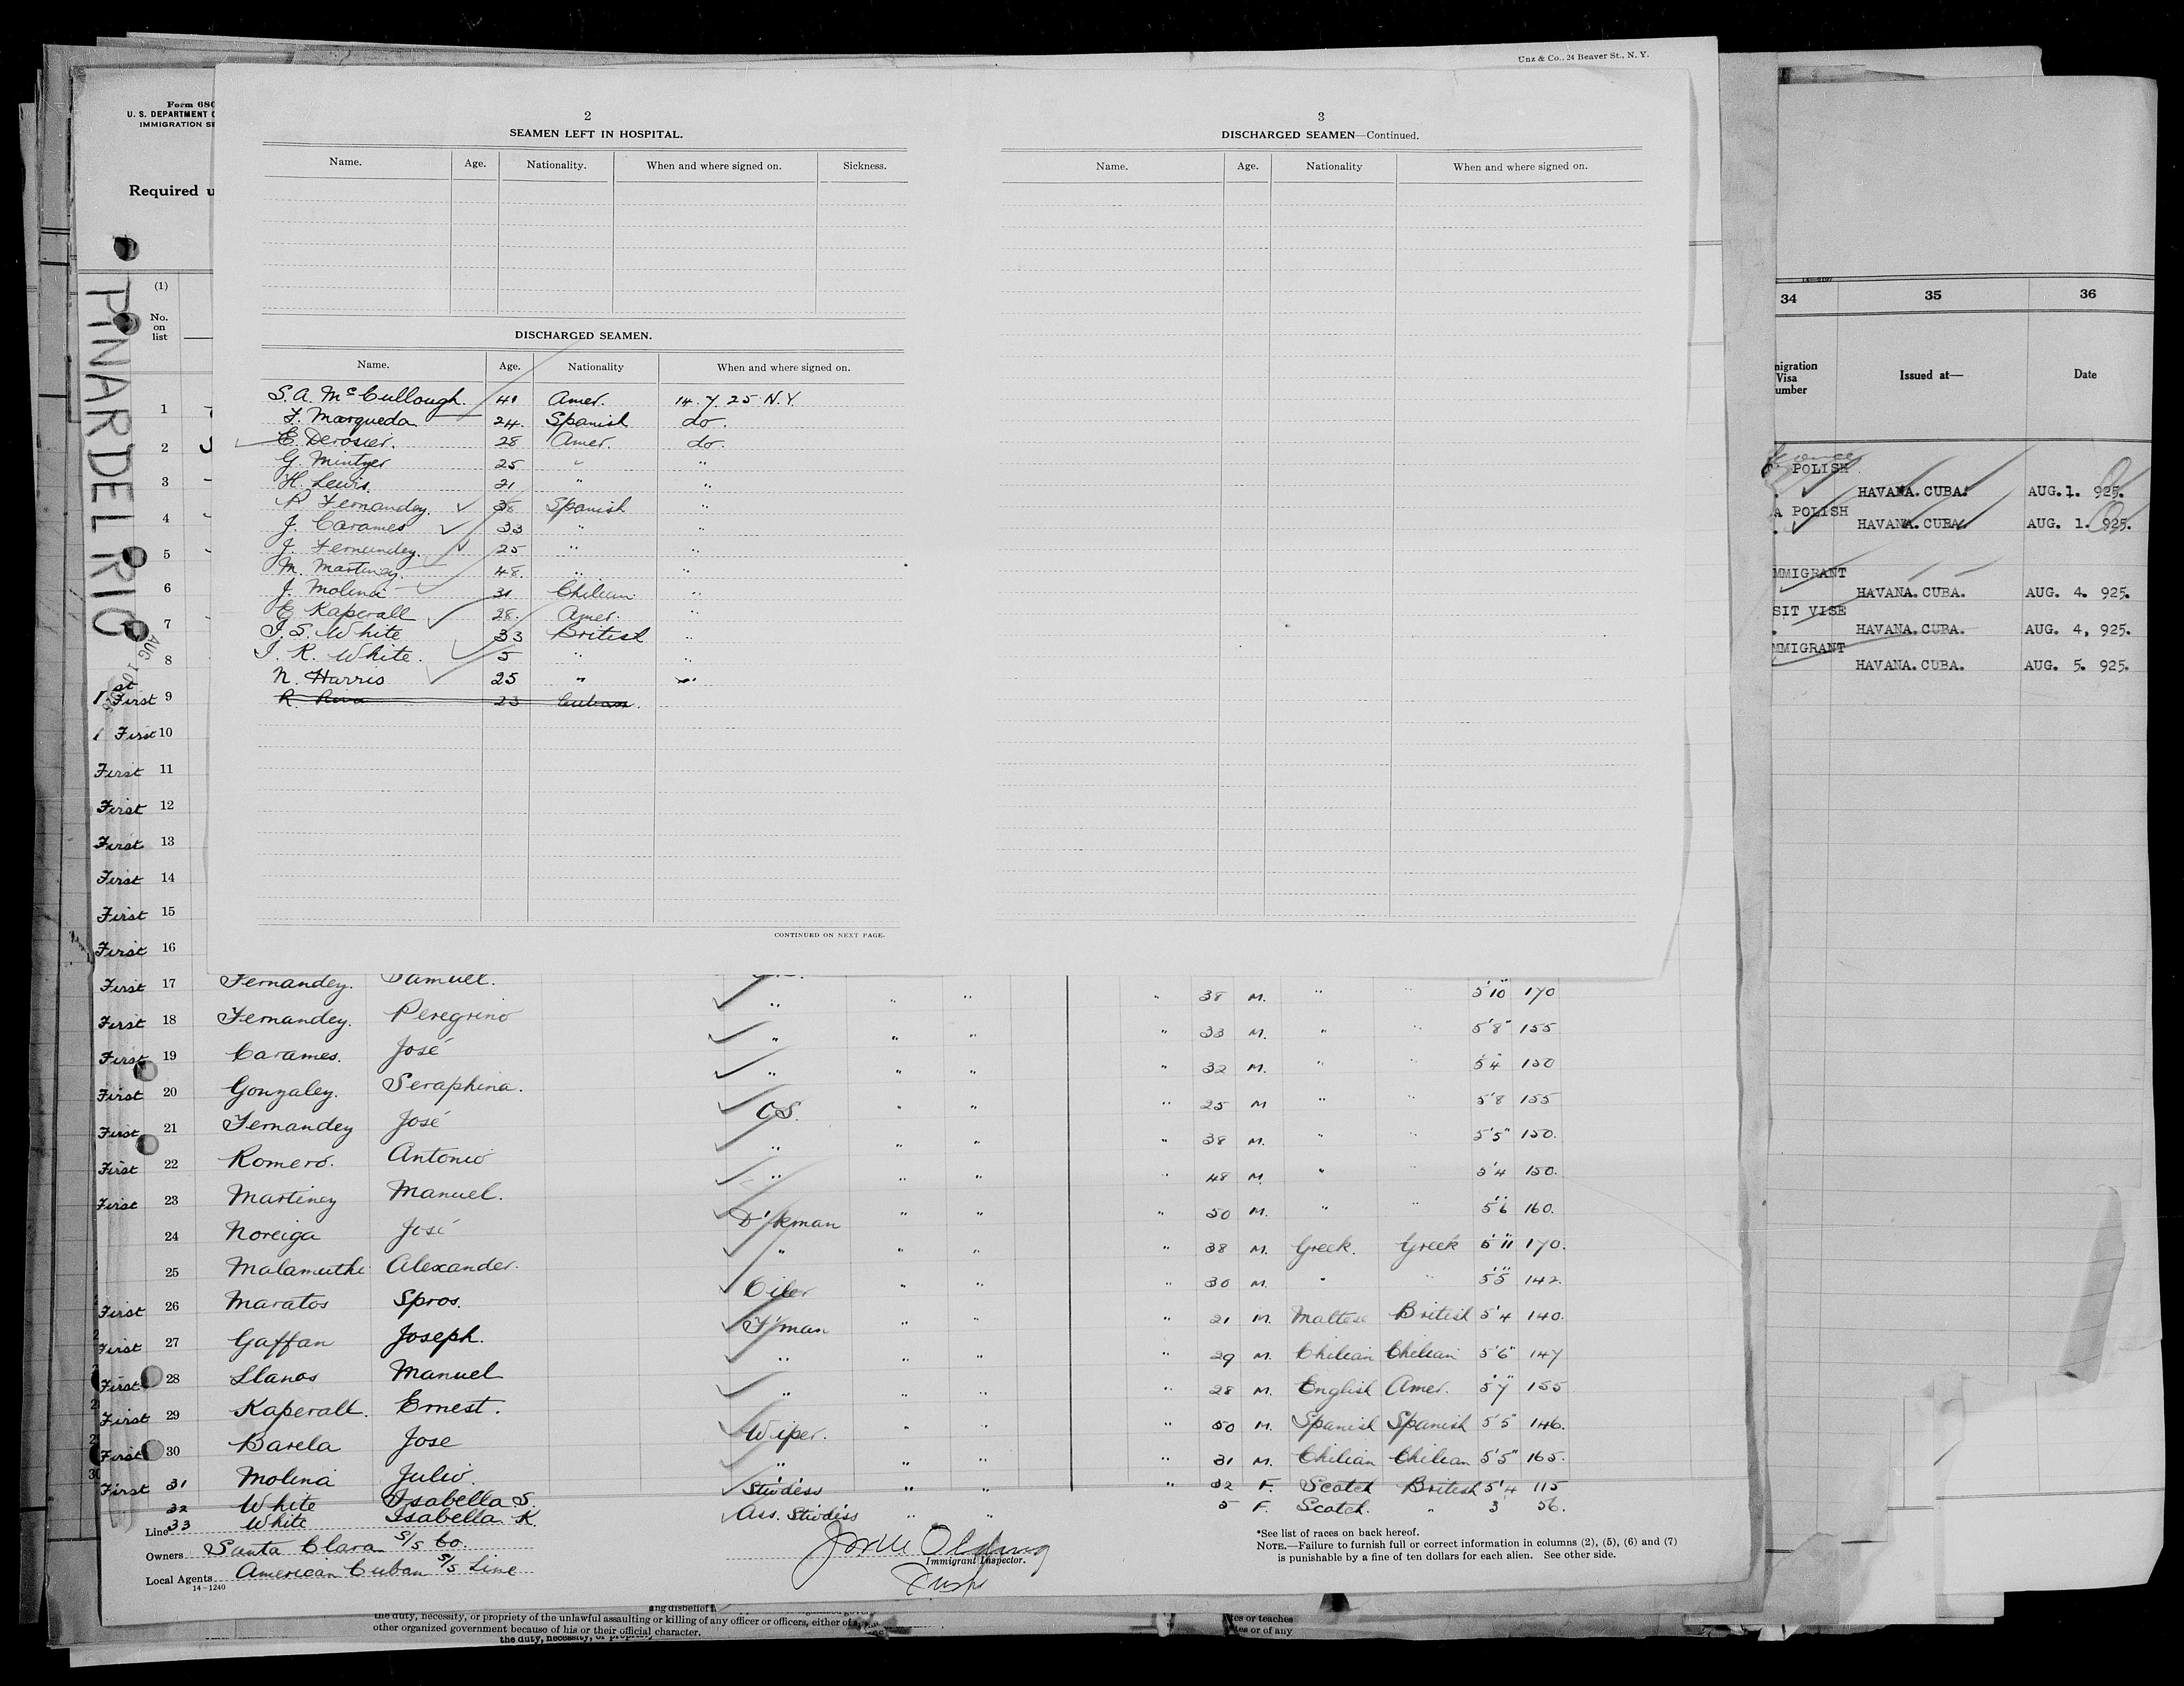 Unz & Co., 24 Beaver St., N. Y.
Form 680
U. S. DEPARTMENT
IMMIGRATION
Required
2
SEAMEN LEFT IN HOSPITAL.
Name. Age. Nationality. When and where signed on. Sickness.
DISCHARGED SEAMEN.
Name. Age. Nationality When and where signed on.
S. A. McCullough. 41 Amer. 14. 7. 25 N.Y.
F. Marqueda 24. Spanish do.
E. Derosier. 28 Amer. do.
G. Mintzer 25 " "
H. Lewis. 21 " "
P Fernandez. 38 Spanish "
J. Carames 33 " "
J. Fernandez. 25 " "
M. Martinez. 48. " "
J. Molina 31 Chilian "
E Kaperall 28. Amer. "
I. S. White 33 British "
I. K. White. 5 " "
N. Harris 25 " "
23 Cuban.
CONTINUED ON NEXT PAGE.
3
DISCHARGED SEAMEN—Continued.
Name. Age. Nationality When and where signed on.
PINAR DEL RIO
(1)
No. on list
1
2
3
4
5
6
7
8
1st First 9
1 First 10
First 11
First 12
First 13
First 14
First 15
First 16
First 17 Fernandez. Samuel.
First 18 Fernandez. Peregrino " " " " 38 M. " " 5'10" 170
First 19 Carames. José " " " " 33 M. " " 5'8" 155
First 20 Gonzalez. Seraphina. " " " " 32 M. " " 5'4 150
First 21 Fernandez José O.S. " " " 25 M " " 5'8 155
First 22 Romero. Antonio " " " " 38 M. " " 5'5" 150.
First 23 Martinez Manuel. " " " " 48 M. " " 5'4 150.
24 Noreiga José D'kman " " " 50 M. " " 5'6 160.
25 Malamuthi Alexander. " " " " 38 M. Greek. Greek 5'11 170.
First 26 Maratos Spros. Oiler " " " 30 M. " " 5'5" 142.
First 27 Gaffan Joseph. F'man " " " 21 M. Maltese British 5'4 140.
First 28 Llanos Manuel " " " " 29 M. Chilian Chilian 5'6" 147
First 29 Kaperall. Ernest. " " " " 28 M. English Amer. 5'7" 155
First 30 Barela Jose Wiper. " " " 50 M. Spanish Spanish 5'5" 146.
First 31 Molina Julio. " " " " 31 M. Chilian Chilian 5'5" 165.
32 White Isabella S. Stwdess " " " 32 F. Scotch British 5'4 115
33 White Isabella K. Ass. Stwdess " " 5 F. Scotch. " 3 56.
Line
Owners Santa Clara S/S Co.
Local Agents American Cuban S/S Line
14-1240
Immigrant Inspector.
*See list of races on back hereof.
NOTE.—Failure to furnish full or correct information in columns (2), (5), (6) and (7)
is punishable by a fine of ten dollars for each alien. See other side.
34 35 36
Visa Issued at— Date
POLISH
HAVANA. CUBA. AUG. 1. 925.
A POLISH
HAVANA. CUBA. AUG. 1. 925.
MMIGRANT
HAVANA. CUBA. AUG. 4. 925.
SIT VISE
HAVANA. CUBA. AUG. 4, 925.
MMIGRANT
HAVANA. CUBA. AUG. 5. 925.
the duty, necessity, or propriety of the unlawful assaulting or killing of any officer or officers, either of
other organized government because of his or their official character.
the duty, necessity, or
or teaches
or of any